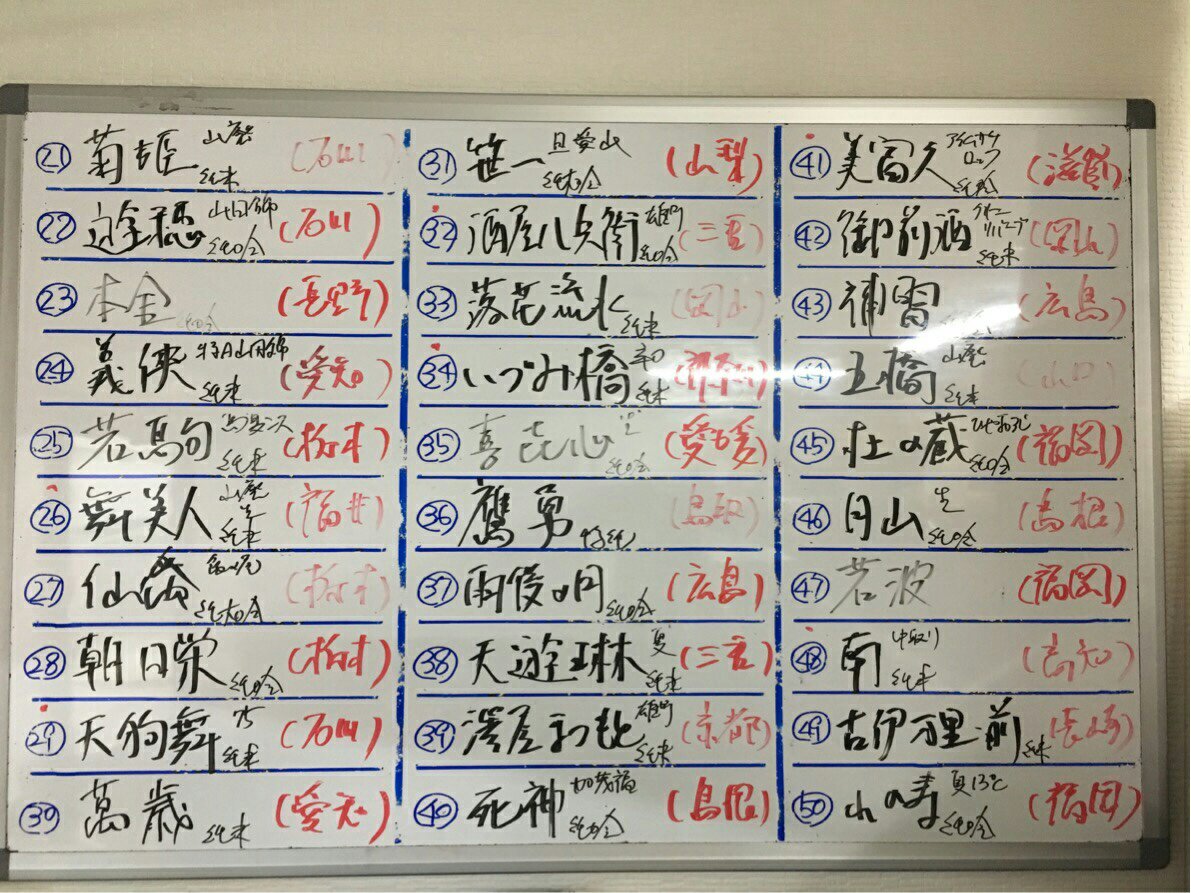 ㉑ 菊姫 山廃 純米 (石川)
㉒ 遊穂 山田錦 純吟 (石川)
㉓ 本金 純吟 (長野)
㉔ 義侠 特A山田錦 純米 (愛知)
㉕ 若駒 純米 (栃木)
㉖ 舞美人 山廃 生 純米 (福井)
㉗ 仙禽 純大吟 (栃木)
㉘ 朝日榮 純吟 (栃木)
㉙ 天狗舞 純米 (石川)
㉚ 萬歳 純米 (愛知)
㉛ 笹一 旦 愛山 純大吟 (山梨)
㉜ 酒屋八兵衛 雄町 純吟 (三重)
㉝ 落花流水 純米 (岡山)
㉞ いづみ橋 純米
㉟ 喜 心 純吟 (愛媛)
㊱ 鷹勇 特純 (鳥取)
㊲ 雨後の月 純吟 (広島)
㊳ 天遊琳 夏 純米 (三重)
㊴ 澤屋まつもと 雄町 純米 (京都)
㊵ 死神 加茂福 (島根)
㊶ 美冨久 ロック 純吟 (滋賀)
㊷ 御前酒 純米 (岡山)
㊸ (広島)
㊹ 五橋 山廃 純米 (山口)
㊺ 杜の蔵 純吟 (福岡)
㊻ 月山 生 純吟 (島根)
㊼ 若波 (福岡)
㊽ 南 中取り 純米 (高知)
㊾ 古伊万里 前 純米
㊿ 山の寿 夏13℃ 純吟 (福岡)